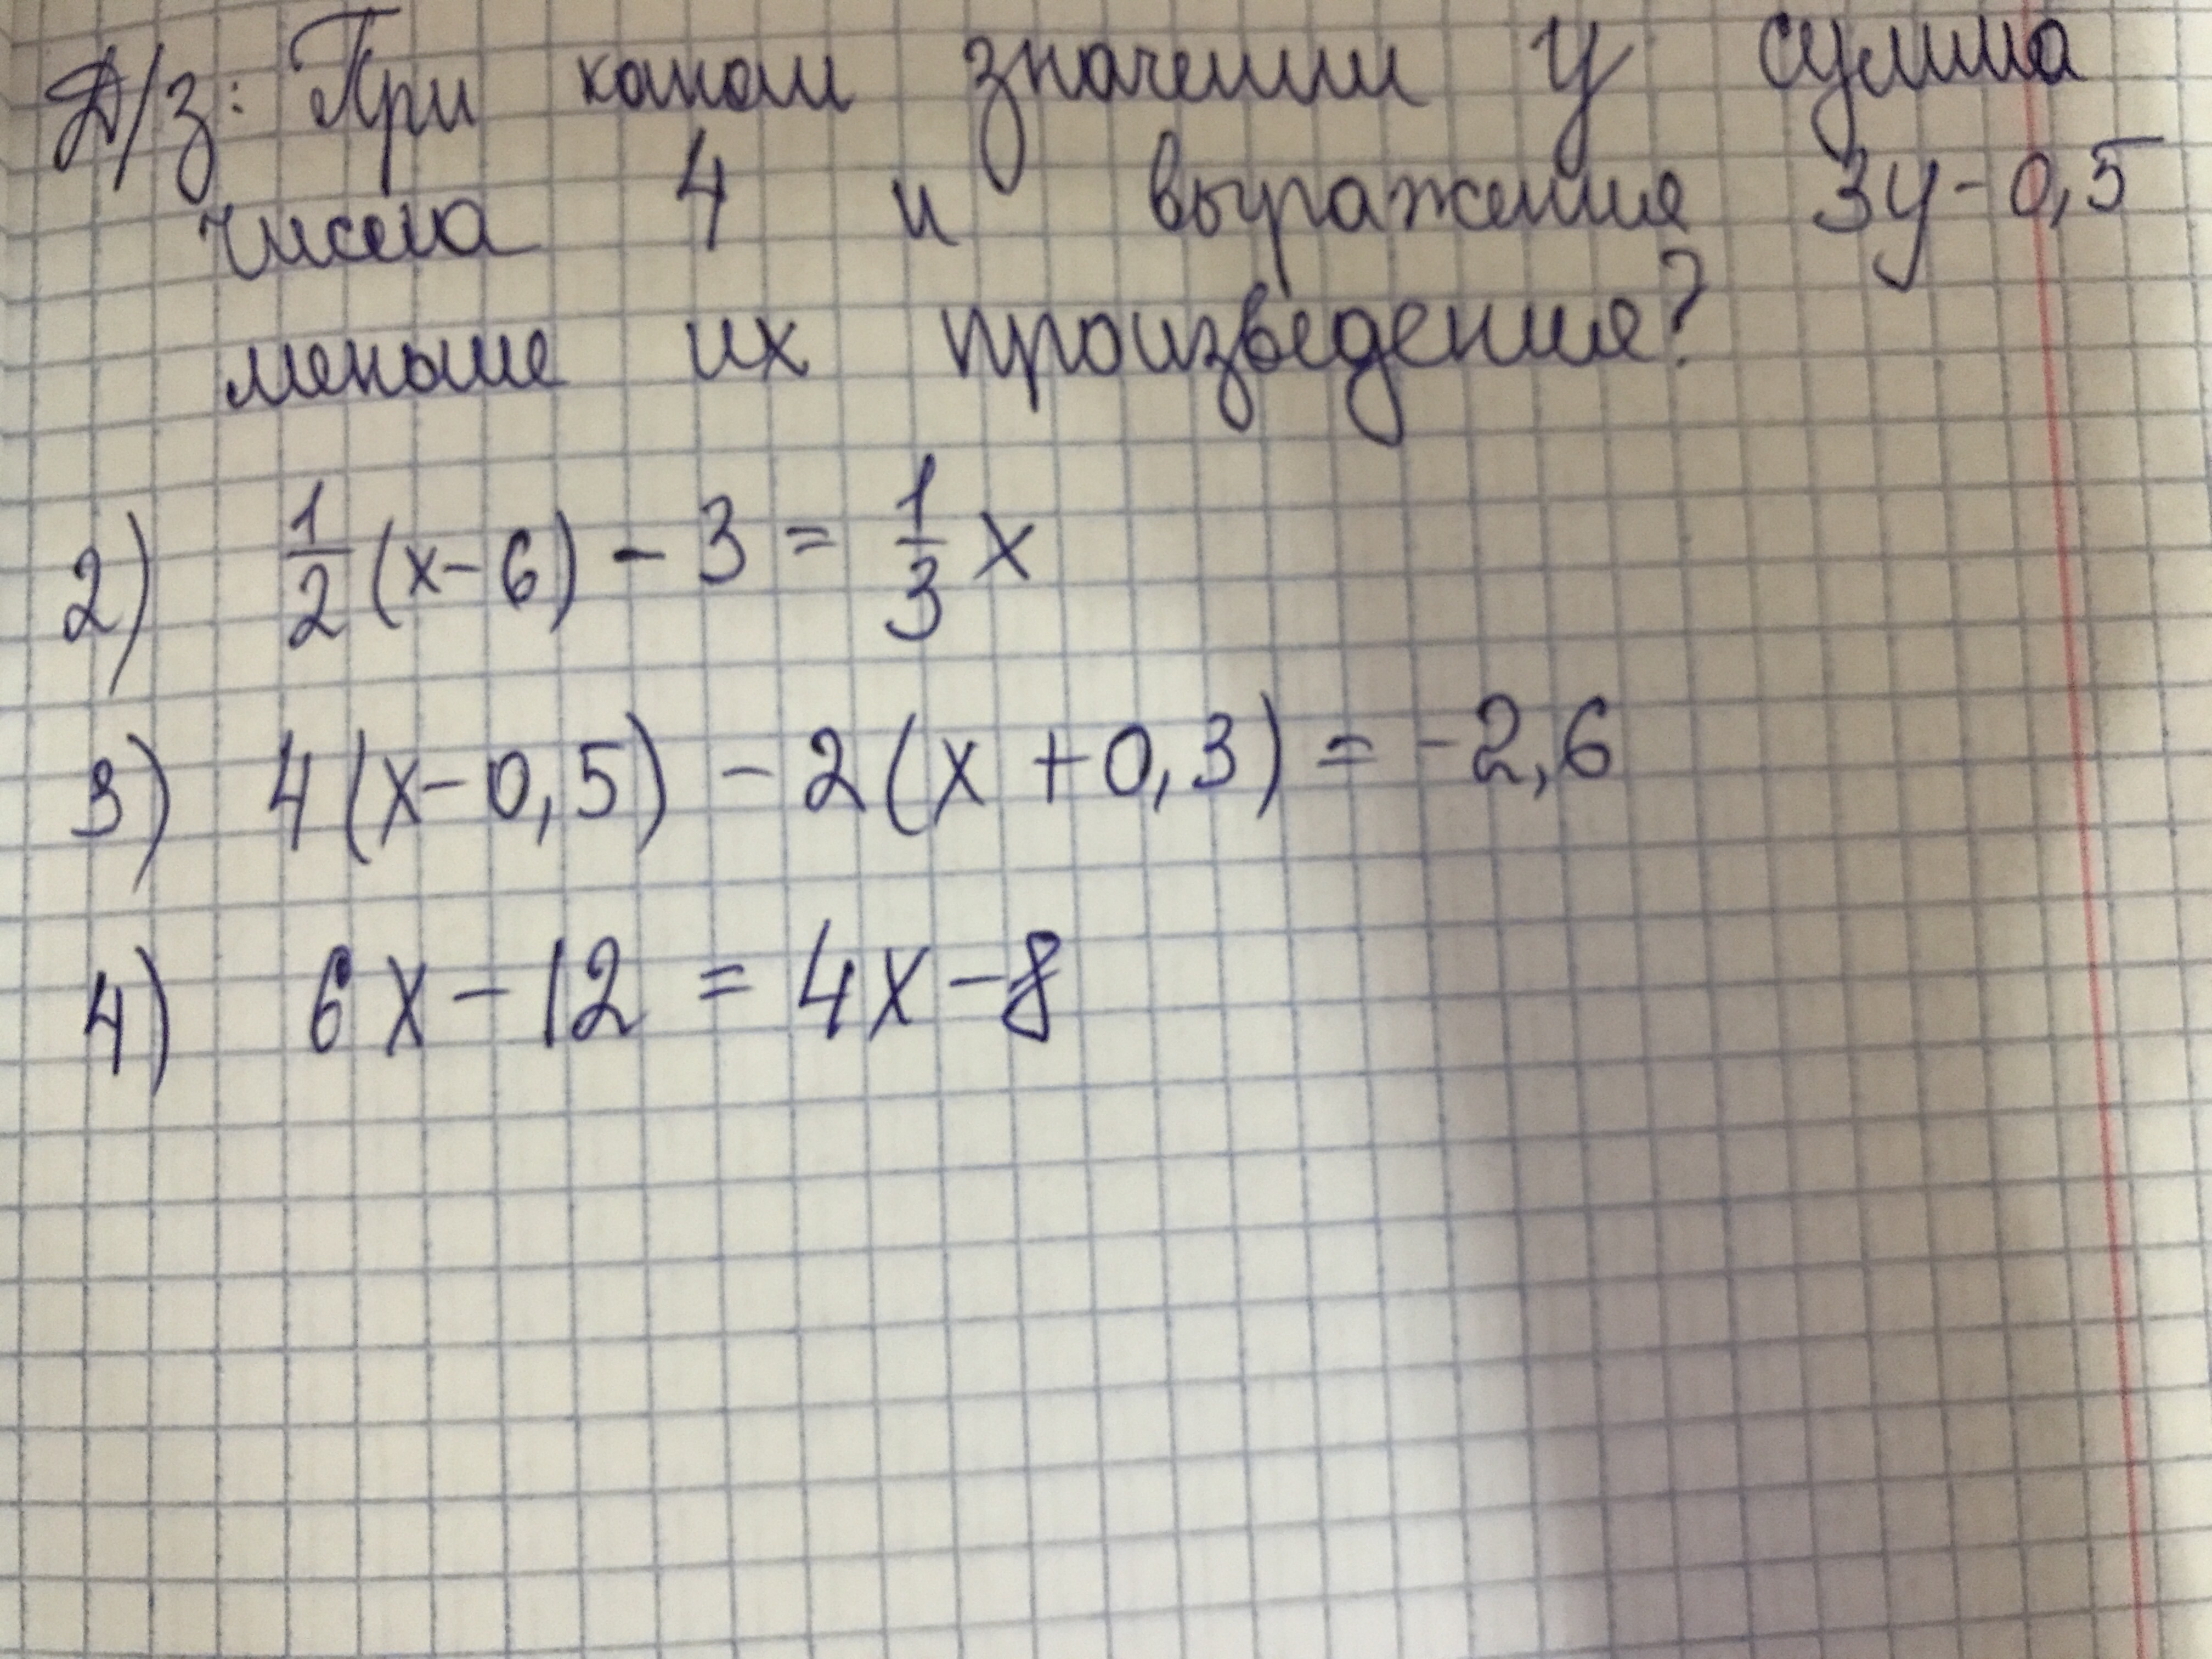 Д/з: При каком значении y сумма
числа 4 и выражения 3y-0,5
меньше их произведения?
2) 1/2 (x-6) - 3 = 1/3 x
3) 4(x-0,5) - 2(x+0,3) = -2,6
4) 6x-12 = 4x-8